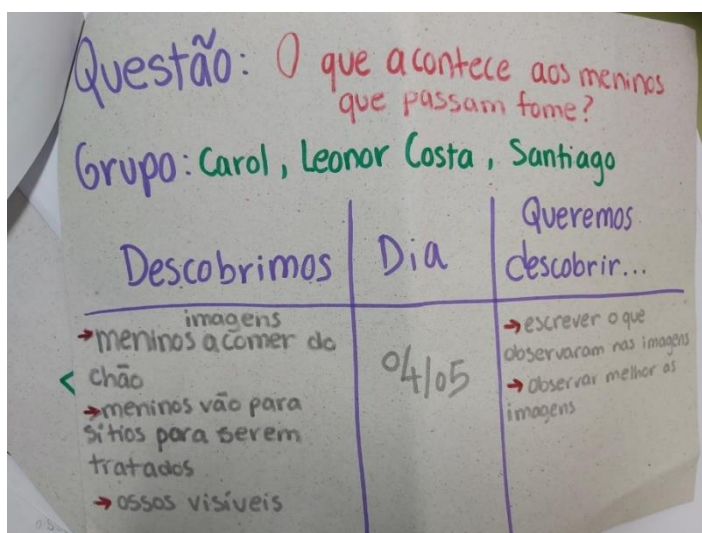 Questão: O que acontece aos meninos
que passam fome?
Grupo: Carol, Leonor Costa, Santiago
Descobrimos
Dia
Queremos
descobrir...
imagens
→ meninos a comer do
< chão
→ meninos vão para
sítios para serem
tratados
→ ossos visíveis
04/05
→ escrever o que
observaram nas imagens
→ observar melhor as
imagens